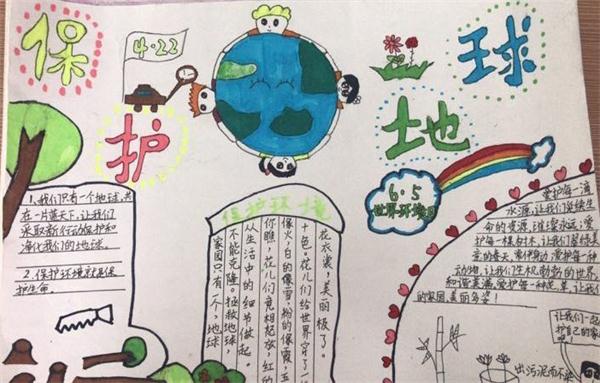 保
护
地
球
4.22
6·5
世界环境日
1、我们只有一个地球,共
在一片蓝天下,让我们
采取新行动保护和
净化我们的地球。
2、保护环境就是保
护生命。
保护环境
花衣裳,美丽极了。
十色。花儿们给世界穿了件
像火,白的像雪,粉的像霞,五
你瞧,花儿们竟相起放,红的
从生活中的细节做起。
不能克隆。拯救地球,
家园只有一个,地球
爱护每一滴
水源,让我们延续生
命的资源,
护每一棵树木,让我们
的春天。
动物,让我们生机勃勃的世界
和谐美满。爱护每一种花草,让我们
的家园,美丽多姿!
让我们一起
护自己的家
出污泥而不染